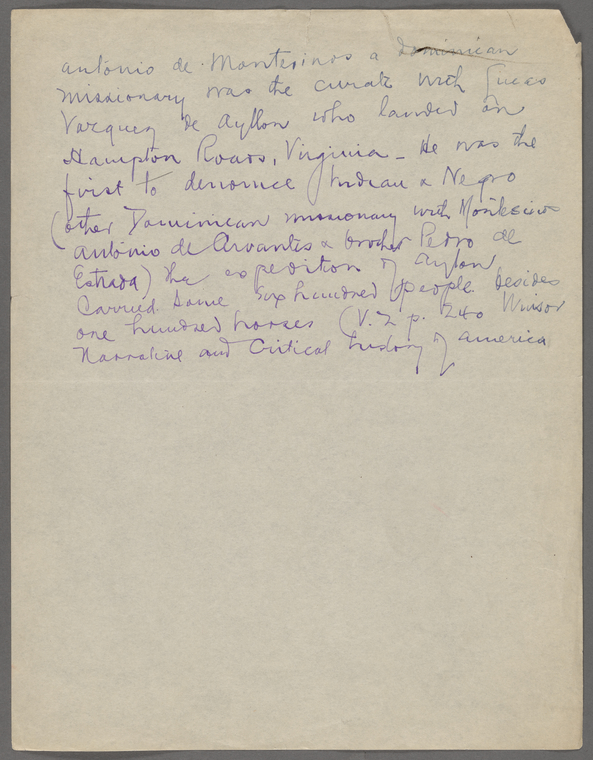 Antonio de Montesinos a Dominican
missionary was the curate with Lucas
Vazquez de Ayllon who landed on
Hampton Roads, Virginia _ He was the
first to denounce Indian & Negro
(other Dominican missionary with Montesinos
Antonio de Cervantes & brother Pedro de
Estrada) the expedition of Ayllon
Carried some six hundred people besides
one hundred horses (V. 2 p. 240 Winsor
Narrative and Critical history of America